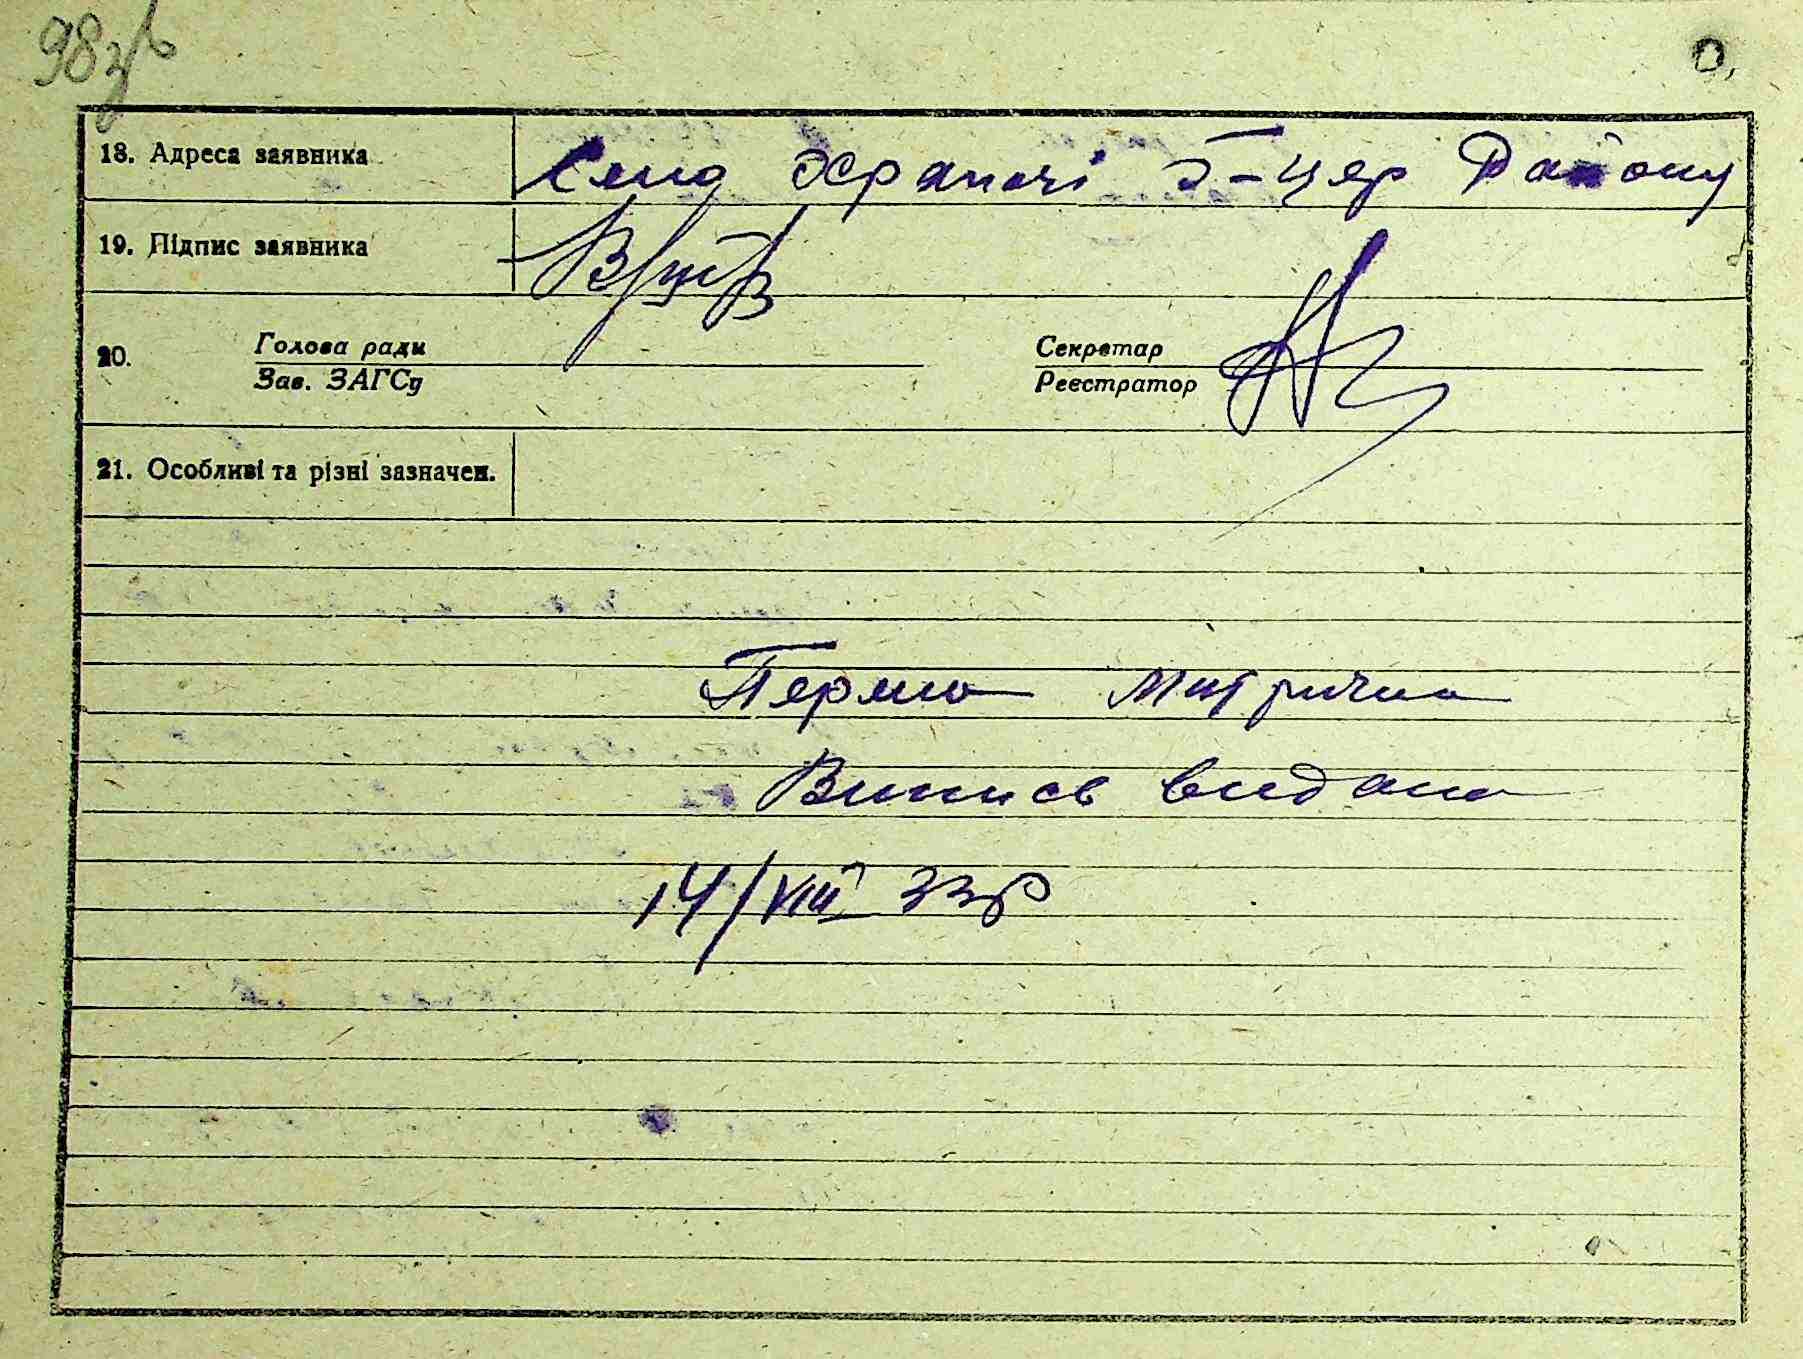 98зв
18. Адреса заявника Село Храпачі Б-цер Району
19. Підпис заявника
20. Голова ради
Зав. ЗАГСу
Секретар
Реєстратор
21. Особливі та різні зазначен.
Перша Митрична
Випись видана
14/VIII 33р